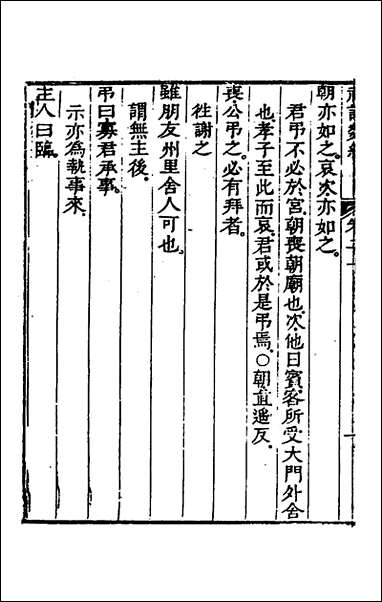 朝亦如之。哀次亦如之。
君弔不必於宮。朝喪朝廟也。次他日賓客所受大門外舍
也孝子至此而哀。君或於是弔焉。○朝直遥反。
喪公弔之。必有拜者。
往謝之
雖朋友州里舍人可也。
謂無主後。
弔曰寡君承事。
示亦為執事來。
主人曰臨。